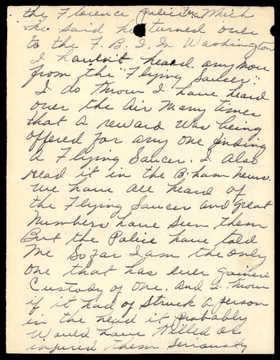 the Florence Police Which
He said he turned over
to the F. B. I. In Washington
I havn't heard any more
from the "Flying Saucer"
I do know I have heard
over the Air Many times
that A reward was being
offered for any one finding
A Flying Saucer. I Also
read it in the B.ham news.
We have all heard of
the Flying Saucer and great
Numbers have seen them
But the Police have told
Me So far I am the only
one that has ever gained
Custody of one. And I know
if it had of Struck A person
in the head it probably
Would have Killed or
injured them Seriously